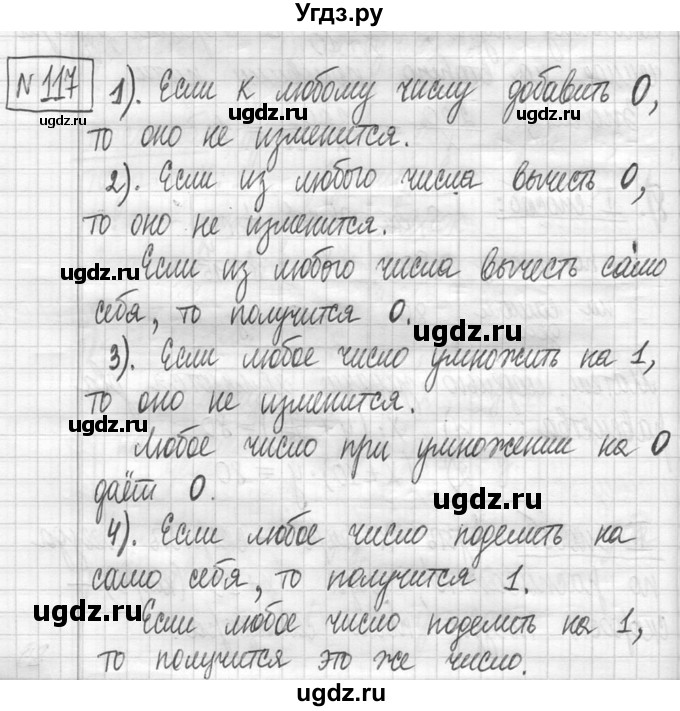 Угдз.ру
№ 117 1). Если к любому числу добавить 0,
то оно не изменится.
2). Если из любого числа вычесть 0,
то оно не изменится.
Если из любого числа вычесть само
себя, то получится 0.
3). Если любое число умножить на 1,
то оно не изменится.
Любое число при умножении на 0
даёт 0.
4). Если любое число поделить на
само себя, то получится 1.
Если любое число поделить на 1,
то получится это же число.
ugdz.ru
ugdz.ru
ugdz.ru
ugdz.ru
ugdz.ru
ugdz.ru
ugdz.ru
ugdz.ru
ugdz.ru
ugdz.ru
ugdz.ru